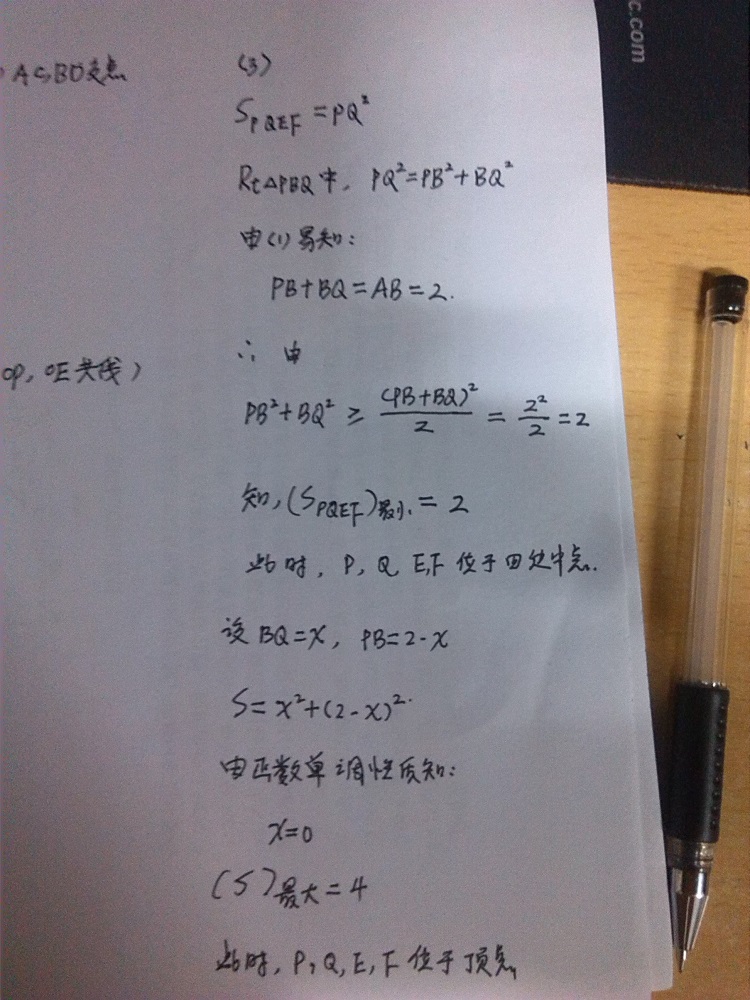 AC,BD交点
(3)
S_PQEF = PQ²
Rt△PBQ中, PQ²=PB²+BQ²
由(1)易知:
PB+BQ=AB=2.
∴ 由
OP, OE共线)
PB²+BQ² ≥ (PB+BQ)²/2 = 2²/2 = 2
知, (S_PQEF)最小 = 2
此时, P, Q E,F 位于四边中点.
设 BQ=x, PB=2-x
S= x²+(2-x)².
由函数单调性质知:
x=0
(S)最大=4
此时, P, Q, E, F 位于顶点,
c.com